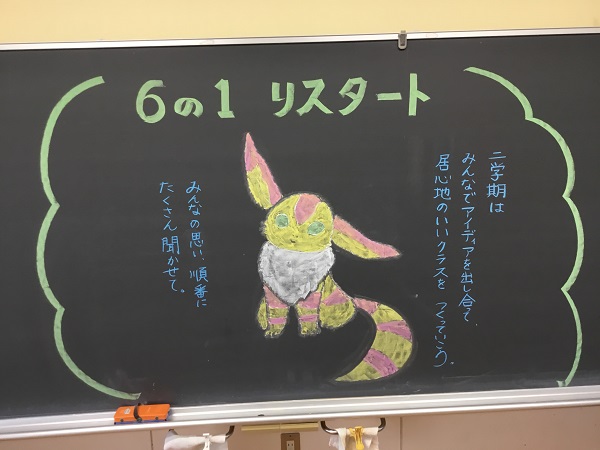 6の1 リスタート
二学期は
みんなでアイディアを出し合て、
居心地のいいクラスを つくっていこう。
みんなの思い、順番に
たくさん聞かせて。